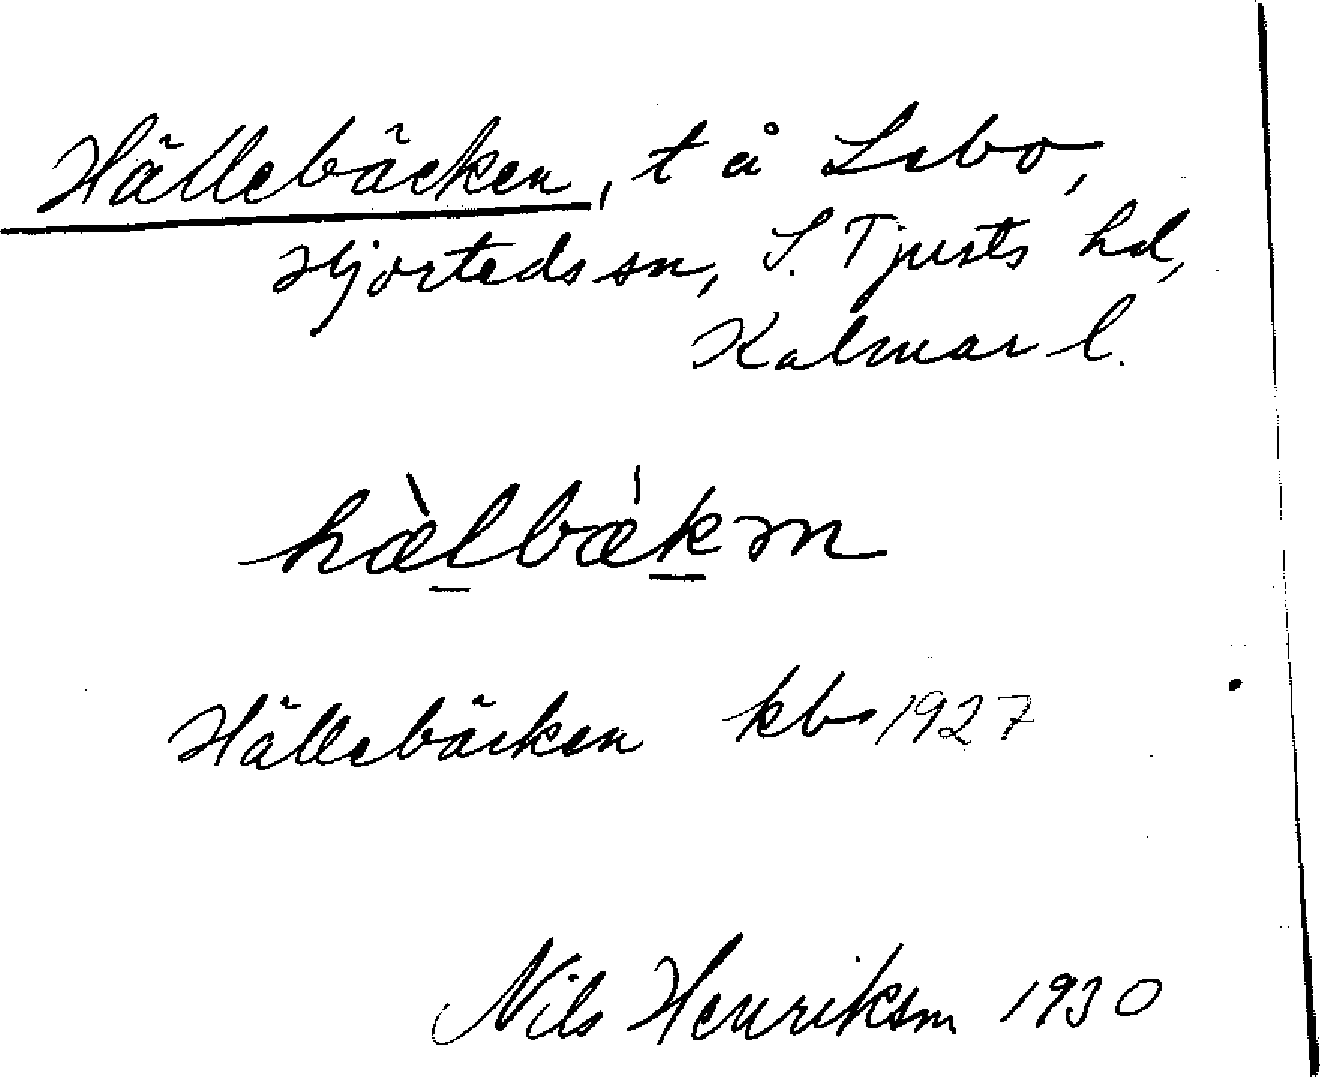 Hällebäcken, t å Lebo,
Hjorteds sn, S. Tjusts hd,
Kalmar l.
hæ̀l̲bǽk̲m
Hällebäcken kbs 1927
Nils Henrikson 1930